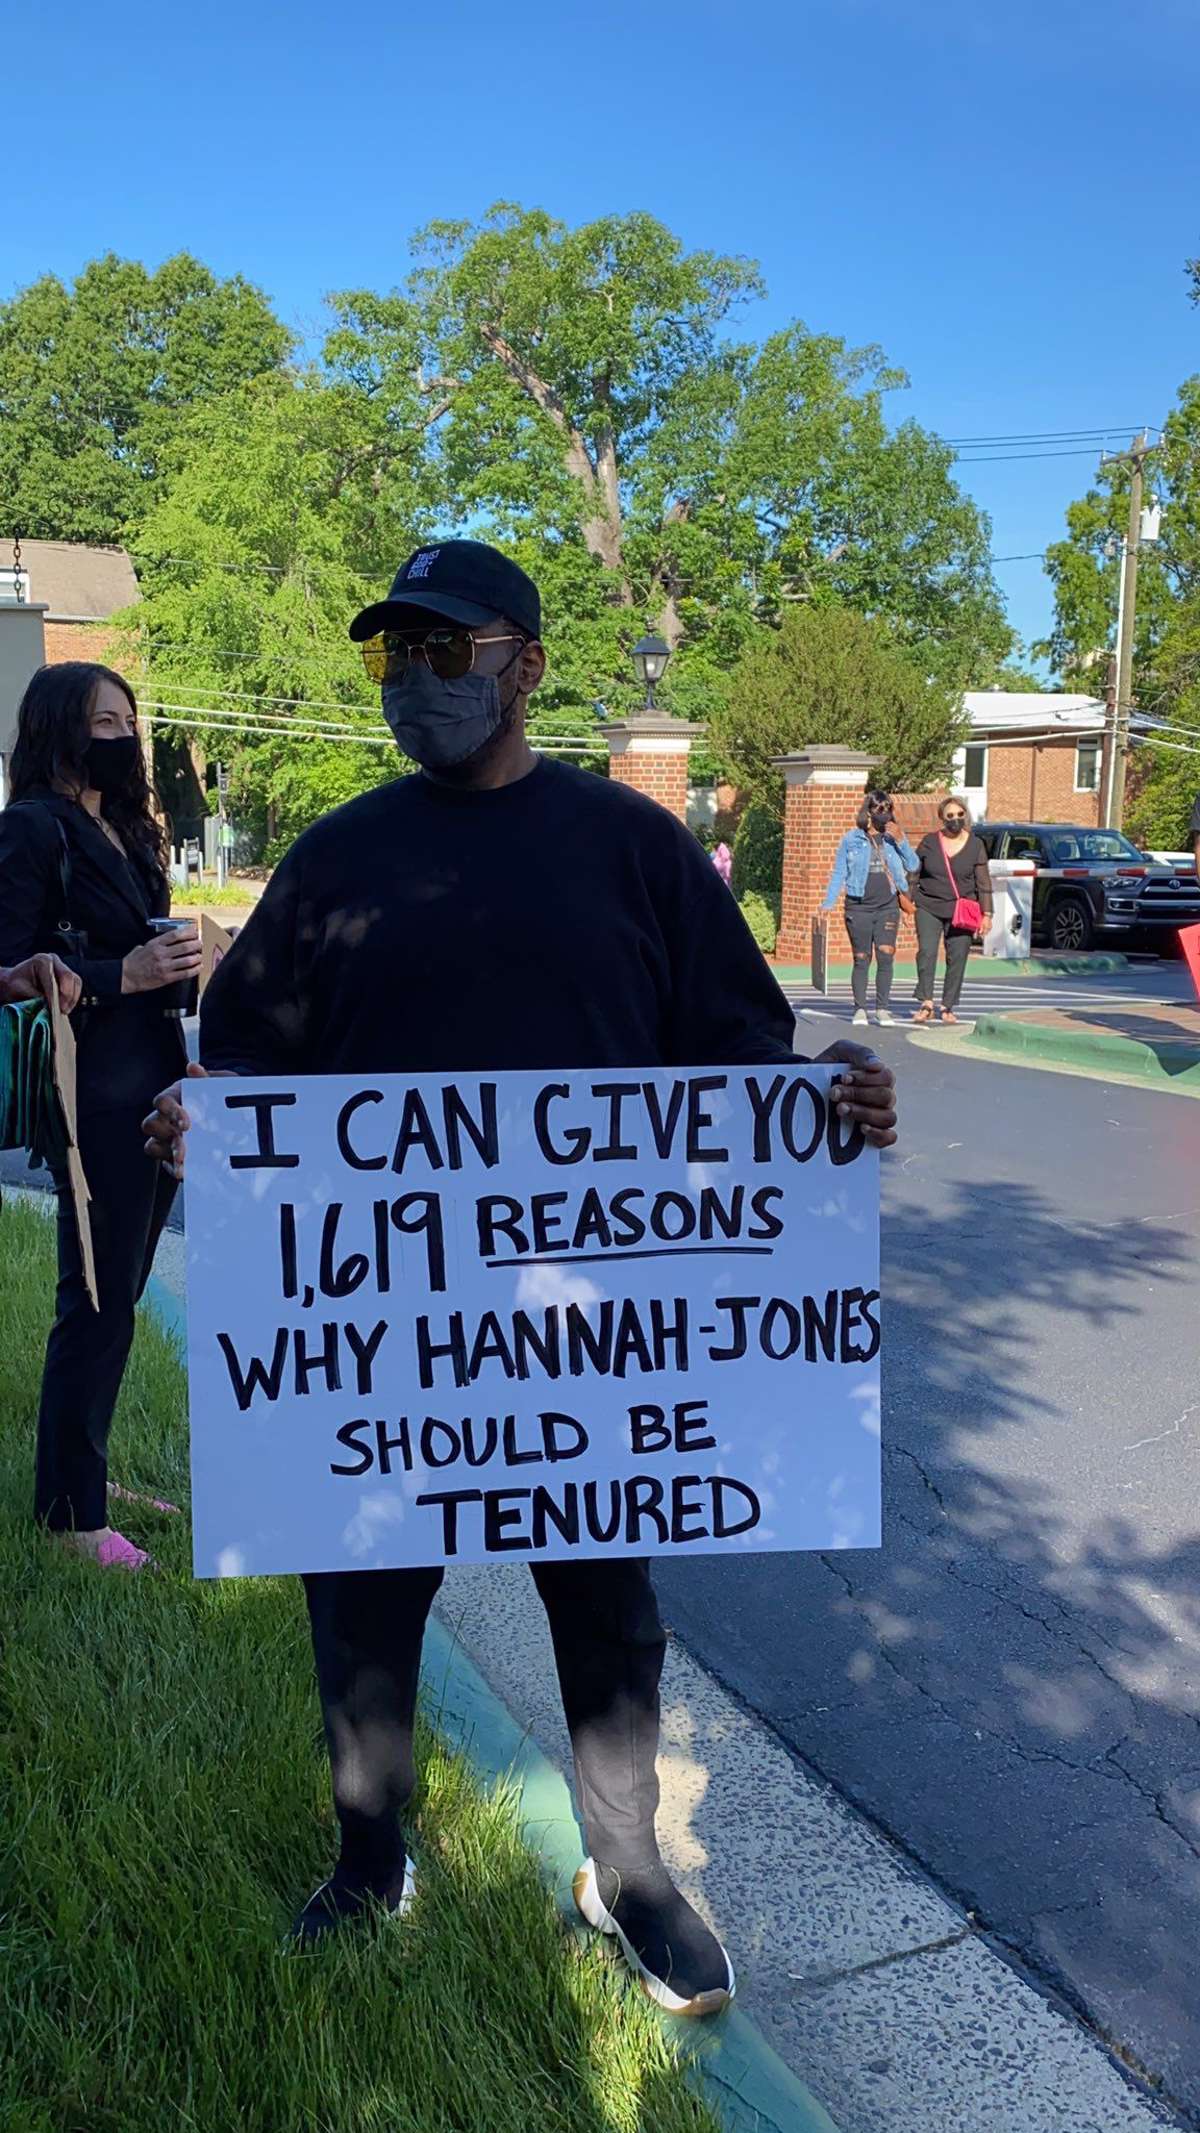 TRUST
GOD+
CHILL
I CAN GIVE YOU
1,619 REASONS
WHY HANNAH-JONES
SHOULD BE
TENURED